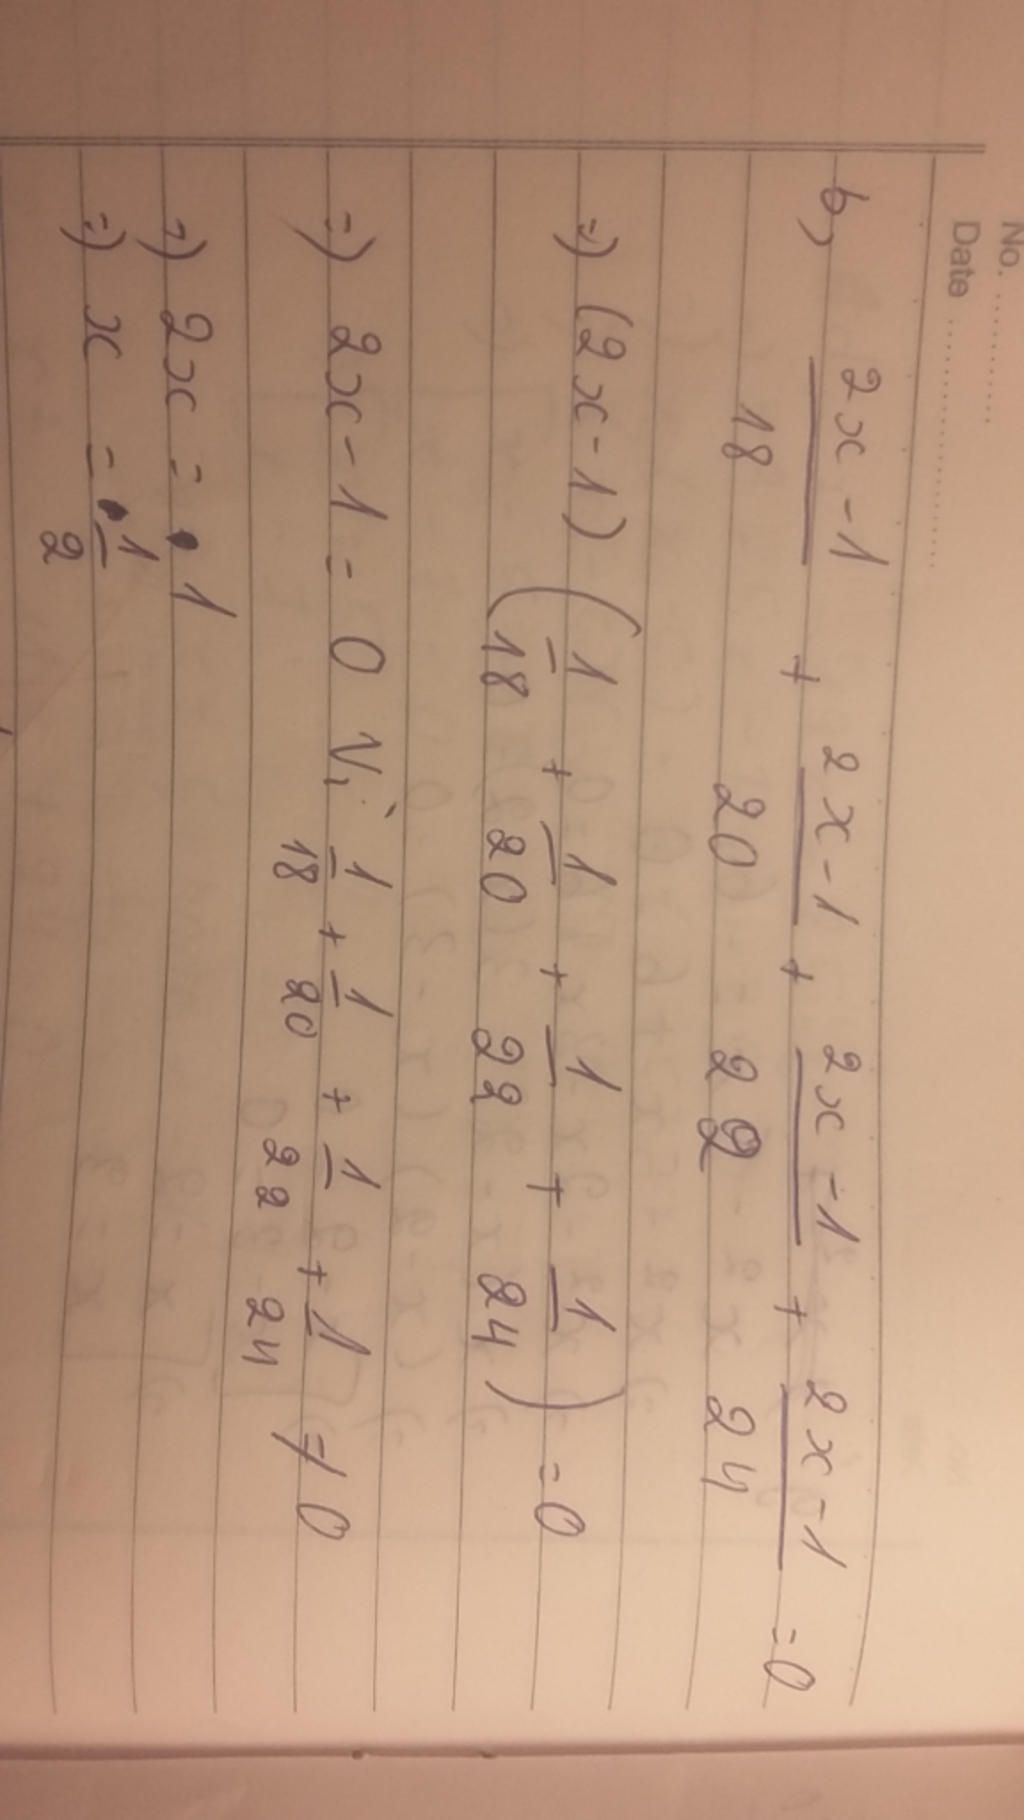 No. ....................
Date ....................
b, (2x-1)/18 + (2x-1)/20 + (2x-1)/22 + (2x-1)/24 = 0
=) (2x-1) (1/18 + 1/20 + 1/22 + 1/24) = 0
=) 2x-1 = 0 Vì 1/18 + 1/20 + 1/22 + 1/24 ≠ 0
=) 2x = 1
=) x = 1/2